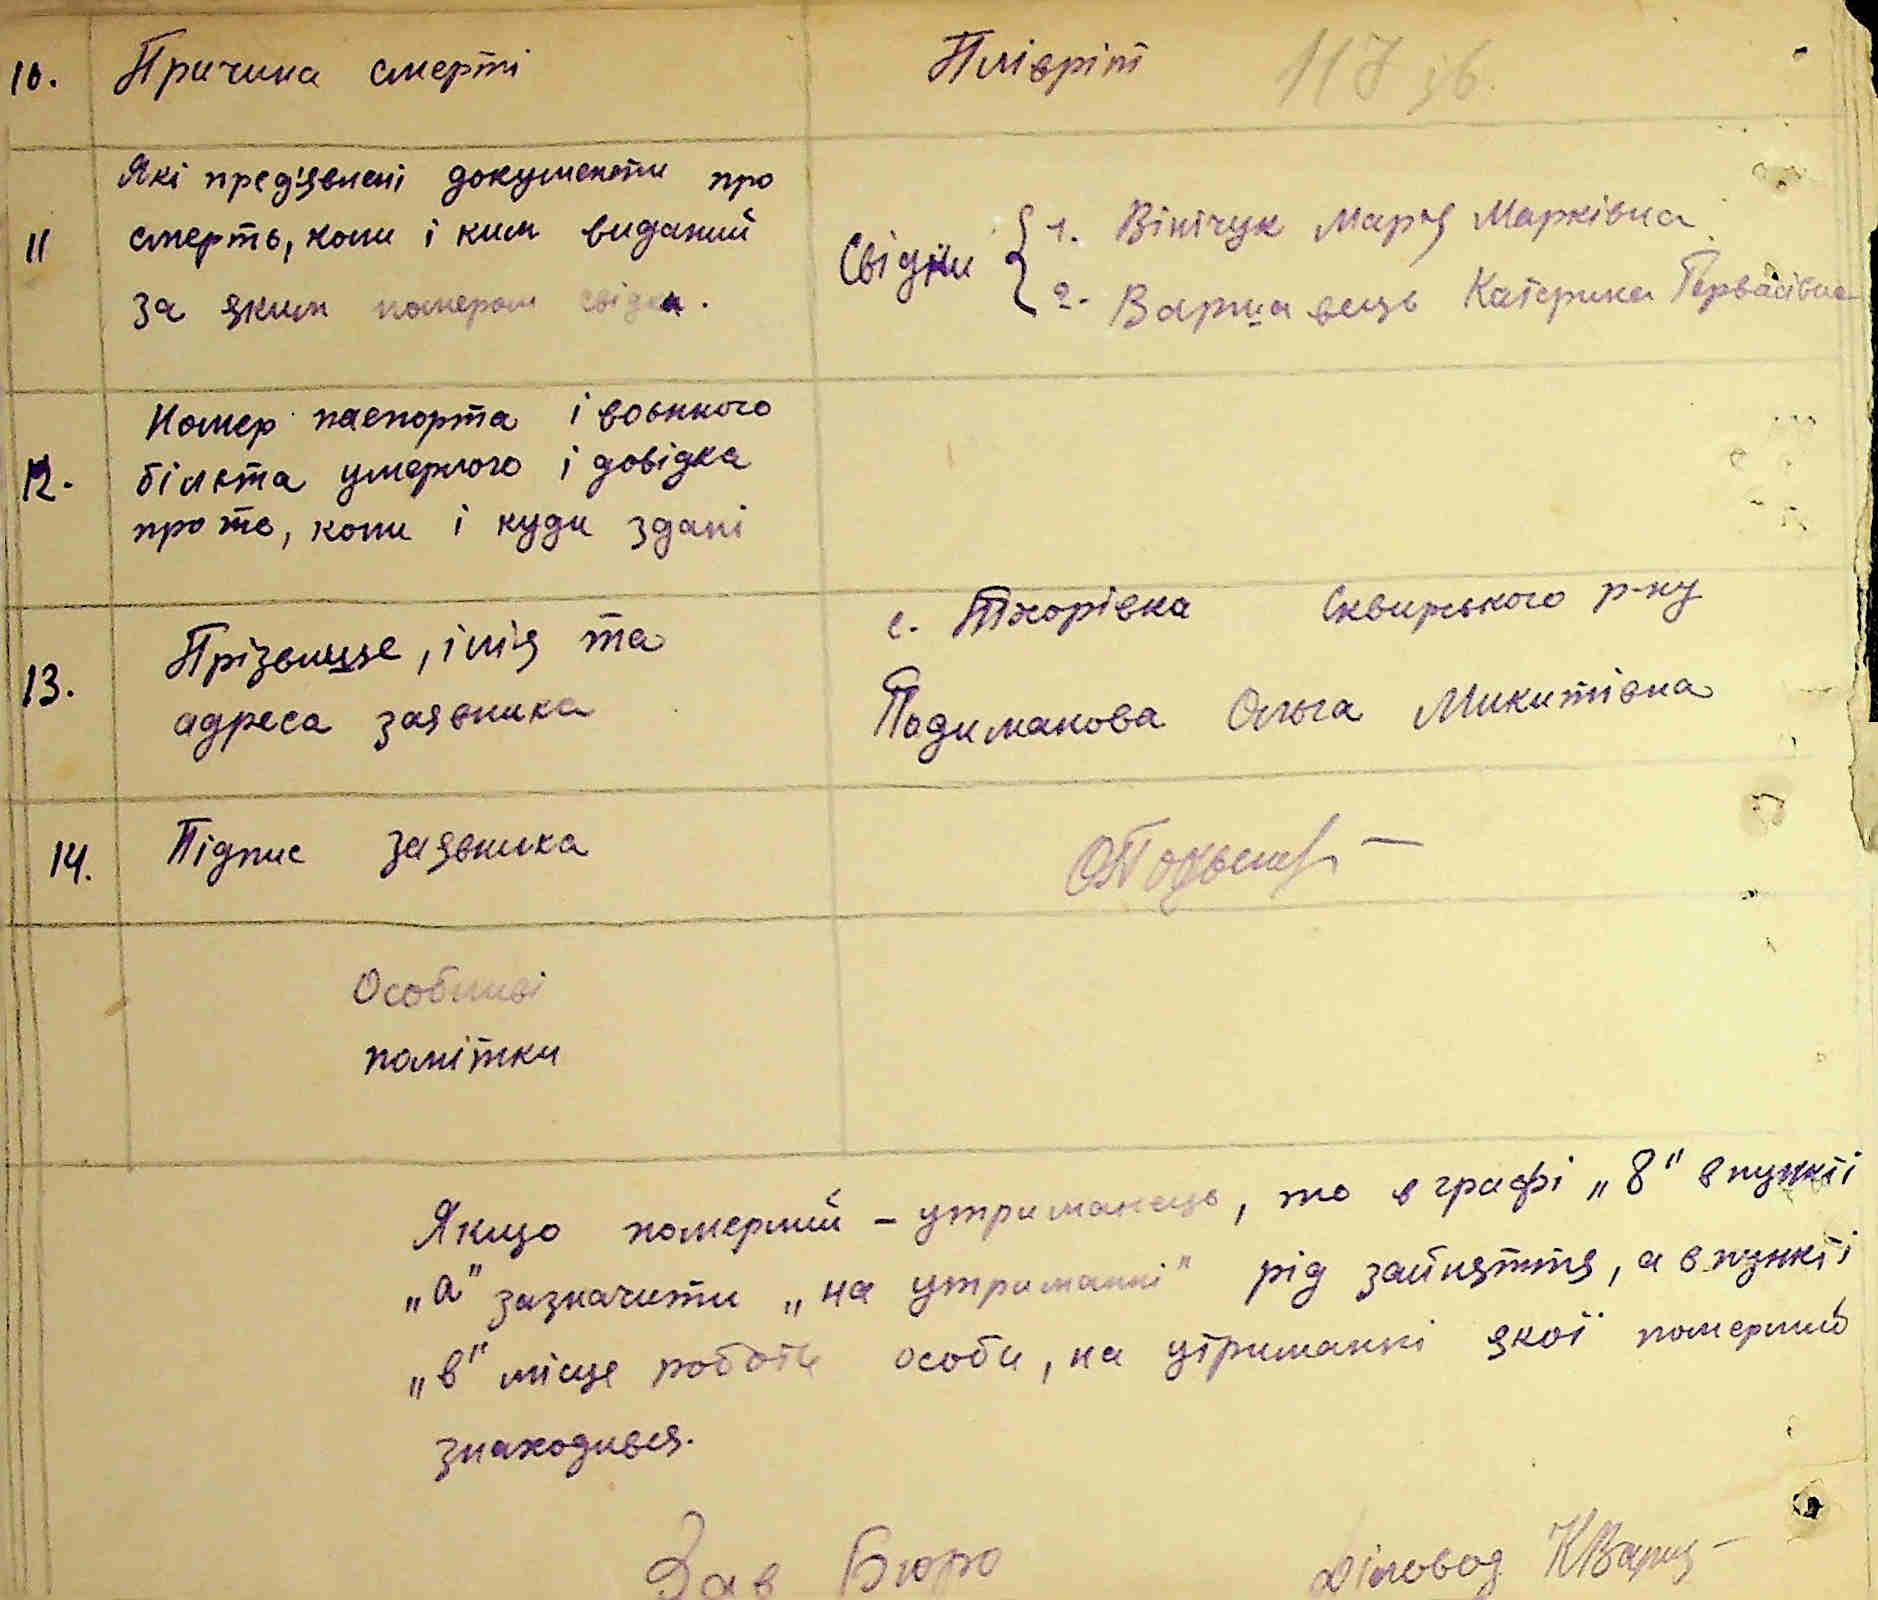 10. Причина смерті Плівріт 117 зв.
Які пред'явлені документи про
11 смерть, коли і ким виданий
за яким номером свідки.
Свідки 1. Вінічук Мар'я Марківна
2. Варшавець Катерина Гервасівна
Номер паспорта і воєнного
12. білєта умерлого і довідка
про те, коли і куди здані
13. Прізвище, імія та
адреса заявника
с. Тхорівка Сквирського р-ну
Подиманова Ольга Микитівна
14. Підпис заявника
Особливі
помітки
Якщо померлий - утриманець, то в графі „8" в пункті
„а" зазначити „на утриманні" рід зайняття, а в пункті
„в" місце роботи особи, на утриманні якої померлий
знаходився.
Зав Бюро Діловод КВарш